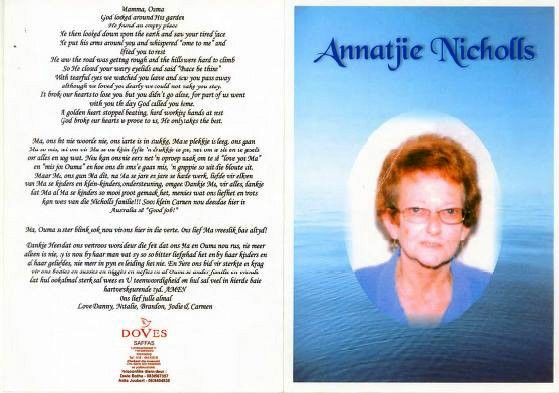 Mamma, Ouma
God looked around His garden
He found an empty place
He then looked down upon the earth and saw your tired face
He put his arms around you and whispered "come to me" and
lifted you to rest
He saw the road was getting rough and the hills were hard to climb
So He closed your weary eyelids and said "Peace be thine"
With tearful eyes we watched you leave and saw you pass away
although we loved you dearly we could not make you stay.
It broke our hearts to lose you but you didn't go alone, for part of us went
with you the day God called you home.
A golden heart stopped beating, hard working hands at rest
God broke our hearts to prove to us, He only takes the best.
Ma, ons het nie woorde nie, ons harte is in stukke, Ma se plekkie is leeg, ons gaan
oor alles en nog wat. Nou kan ons nie eers net 'n oproep maak om te sê "love you Ma"
en "mis jou Ouma" en hoe ons die sms'e gaan mis, 'n grappie so uit die bloute uit.
Maar Me, ons gun Ma dit, na Ma se jare en jare se harde werk, liefde vir elkeen
van Ma se kinders en klein-kinders, ondersteuning, omgee Dankie Ma, vir alles, dankie
dat Ma al Ma se kinders so mooi groot gemaak het, mense wat ons liefhet en trots
kan wees van die Nicholls familie!!! Soos klein Carmen nou doodas hier in
Australia sê "Good job!"
Ma, Ouma u ster blink ook nou vir ons hier in die verte. Ons lief Ma vreeslik baie altyd!
Dankie Heer dat ons vertroos word deur die feit dat ons Ma en Ouma nou rus, nie meer
alleen is nie, sy is nou by haar man wat sy so so bitter liefgehad het en by haar kinders en
al haar geliefdes, nie meer in pyn en leiding het nie. En Here ons bid vir sterkte en krag
vir ons boeties en sussies en niggies en nefies en al Ouma se ander familie en vriende
dat hul ook almal sterk sal wees en U teenwoordigheid om hul sal voel in hierdie baie
hartverskeurende tyd. AMEN
Ons lief julle almal
Love Danny, Natalie, Brandon, Jodie & Carmen
DOVES
SAFFAS
Annatjie Nicholls